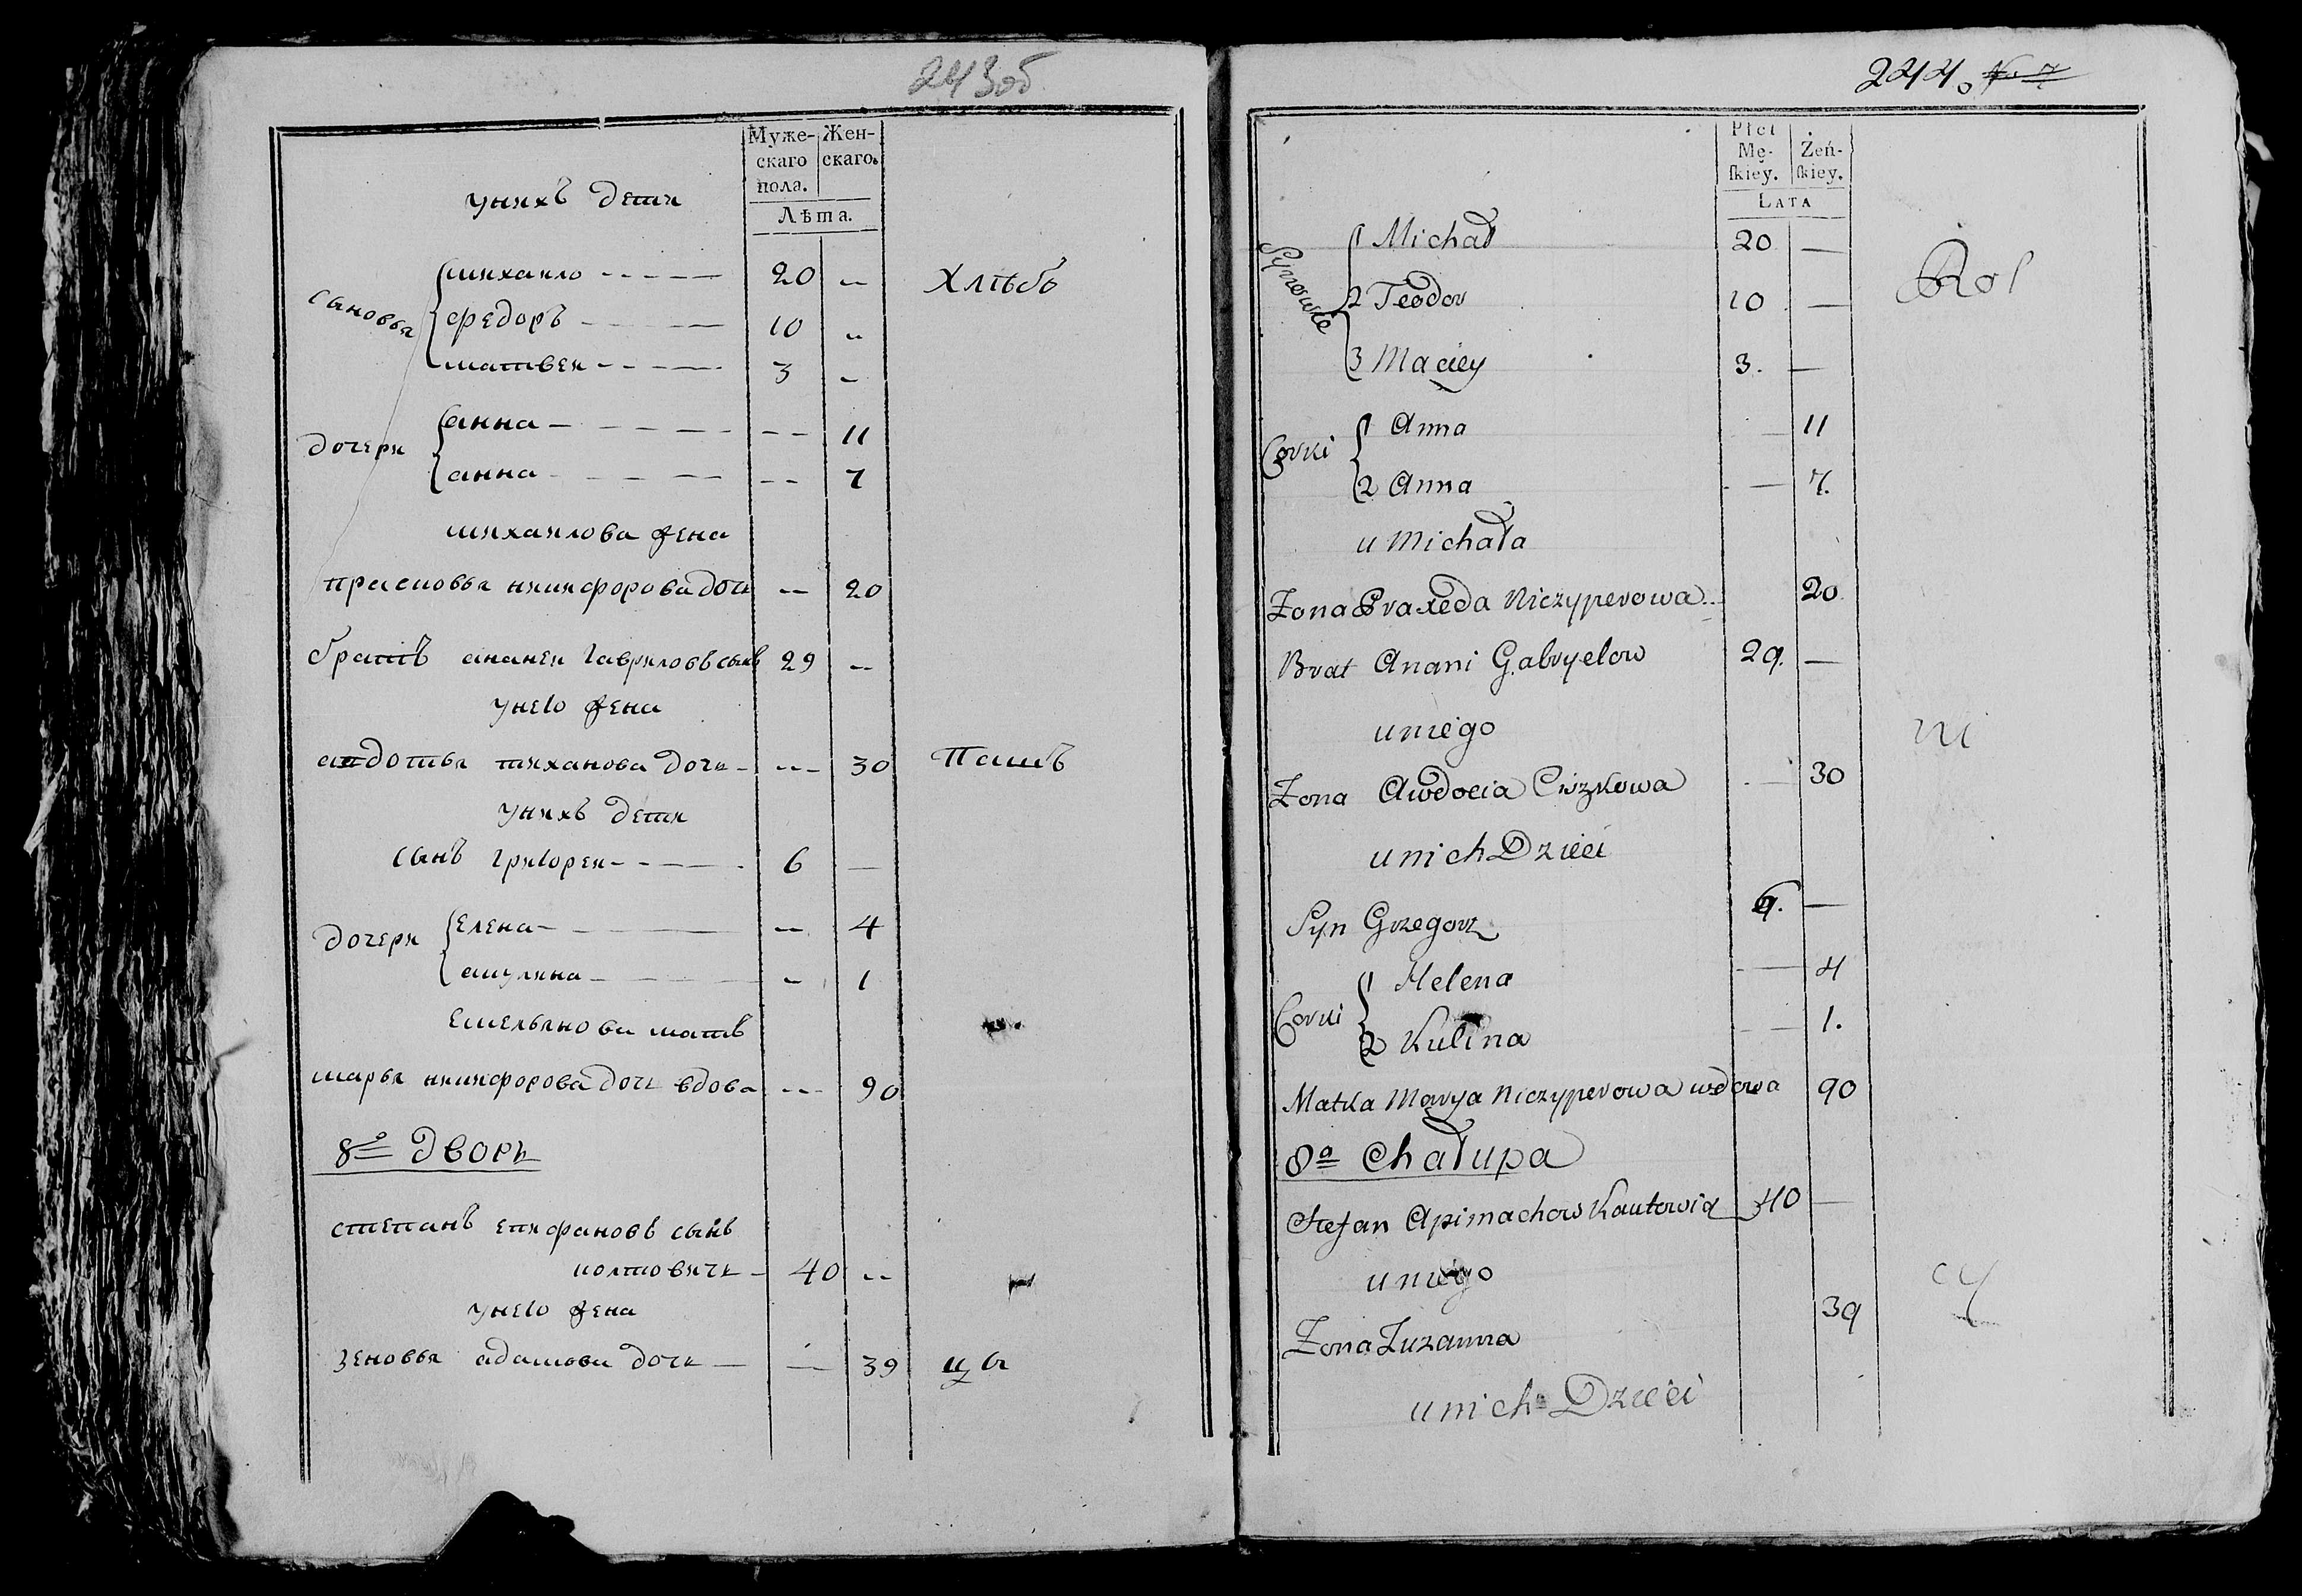 243об
Муже-
скаго
пола.
Жен-
скаго.
Лѣта.
унихъ дети
сыновья
михаило - - - - - 20 --
федоръ - - - - - 10 --
матвеи - - - - - 3 --
Хлѣбо
дочери
анна - - - - - -- 11
анна - - - - - -- 7
михаилова жена
прасковья никифорова дочь -- 20
братъ ананеи гавриловъ сынъ 29 --
унего жена
авдотья тиханова дочь - --- 30
Пашъ
унихъ дети
сынъ григореи - - - - 6 —
дочери
елена - - - -- 4
акулина - - - -- 1
емельянова матъ
марья никифорова дочь вдова --- 90
8º дворъ
степанъ епифановъ сынъ
колтовичь - 40 --
унего жена
зеновья адамова дочь — — 39
цы
244. No 7
Płci
Mę-
ſkiey.
Żeń-
ſkiey.
LATA
Synowie
1 Michał 20 —
2 Teodor 10 —
3 Maciey 3. —
Rol
Corki
1 Anna — 11
2 Anna — 7.
u Michała
Zona Praxeda Niczyperowa 20
Brat Anani Gabryelow 29. —
uniego
ni
Zona Awdocia Ciszkowa — 30
unich Dzieci
Syn Grzegorz 6. —
Corki
1 Helena — 4
2 Kulina — 1.
Matka Marya Niczyperowa wdowa 90
8ª Chałupa
Stefan Apimachow Kautowicz 40 —
uniego
cy
Zona Zuzanna 39
unich Dzieci